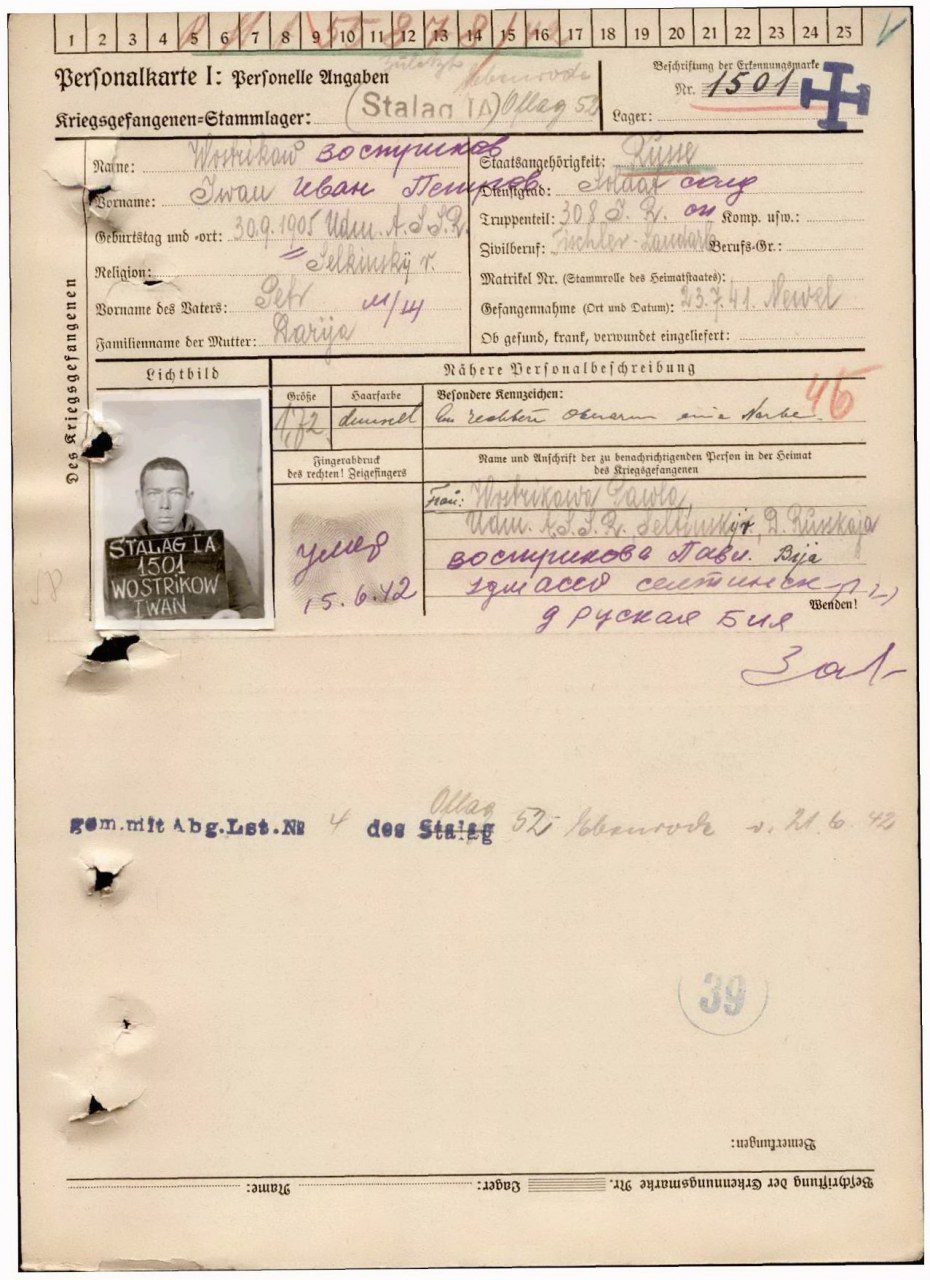 1 2 3 4 5 6 7 8 9 10 11 12 13 14 15 16 17 18 19 20 21 22 23 24 25
Personalkarte I: Personelle Angaben
zuletzt Ebenrode
Beschriftung der Erkennungsmarke
Nr. 1501
Kriegsgefangenen-Stammlager: (Stalag IA) Oflag 52
Lager:
Des Kriegsgefangenen
Name: Wostrikow Востриков
Vorname: Iwan Иван Петров
Geburtstag und -ort: 30.9.1905 Udm. A.S.S.R.
Selkinskÿ r.
Religion:
Vorname des Vaters: Petr
Familienname der Mutter: Darija
Staatsangehörigkeit: Russe
Dienstgrad: Soldat солд
Truppenteil: 308 I. R. Komp. usw.:
Zivilberuf: Tischler-Landarb Berufs-Gr.:
Matrikel Nr. (Stammrolle des Heimatstaates):
Gefangennahme (Ort und Datum): 23.7.41. Newel
Ob gesund, krank, verwundet eingeliefert:
Lichtbild
Nähere Personalbeschreibung
Größe
1,72
Haarfarbe
dunkel
Besondere Kennzeichen:
46
Am rechten Oberarm eine Narbe.
Fingerabdruck
des rechten! Zeigefingers
умер
15.6.42
Name und Anschrift der zu benachrichtigenden Person in der Heimat
des Kriegsgefangenen
Frau: Wostrikowa Pawla
Udm. A.S.S.R. Seltinskÿ r, D. Russkaja
Bija
вострикова Павл.
удмассо селтинск
Wenden!
д Руская Бия
STALAG IA
1501
WOSTRIKOW
IWAN
gem.mit Abg.Lst.No 4 des Stalag Oflag 52 Ebenrode v. 21.6.42
39
Bemerkungen:
Beschriftung der Erkennungsmarke Nr. Lager: Name: